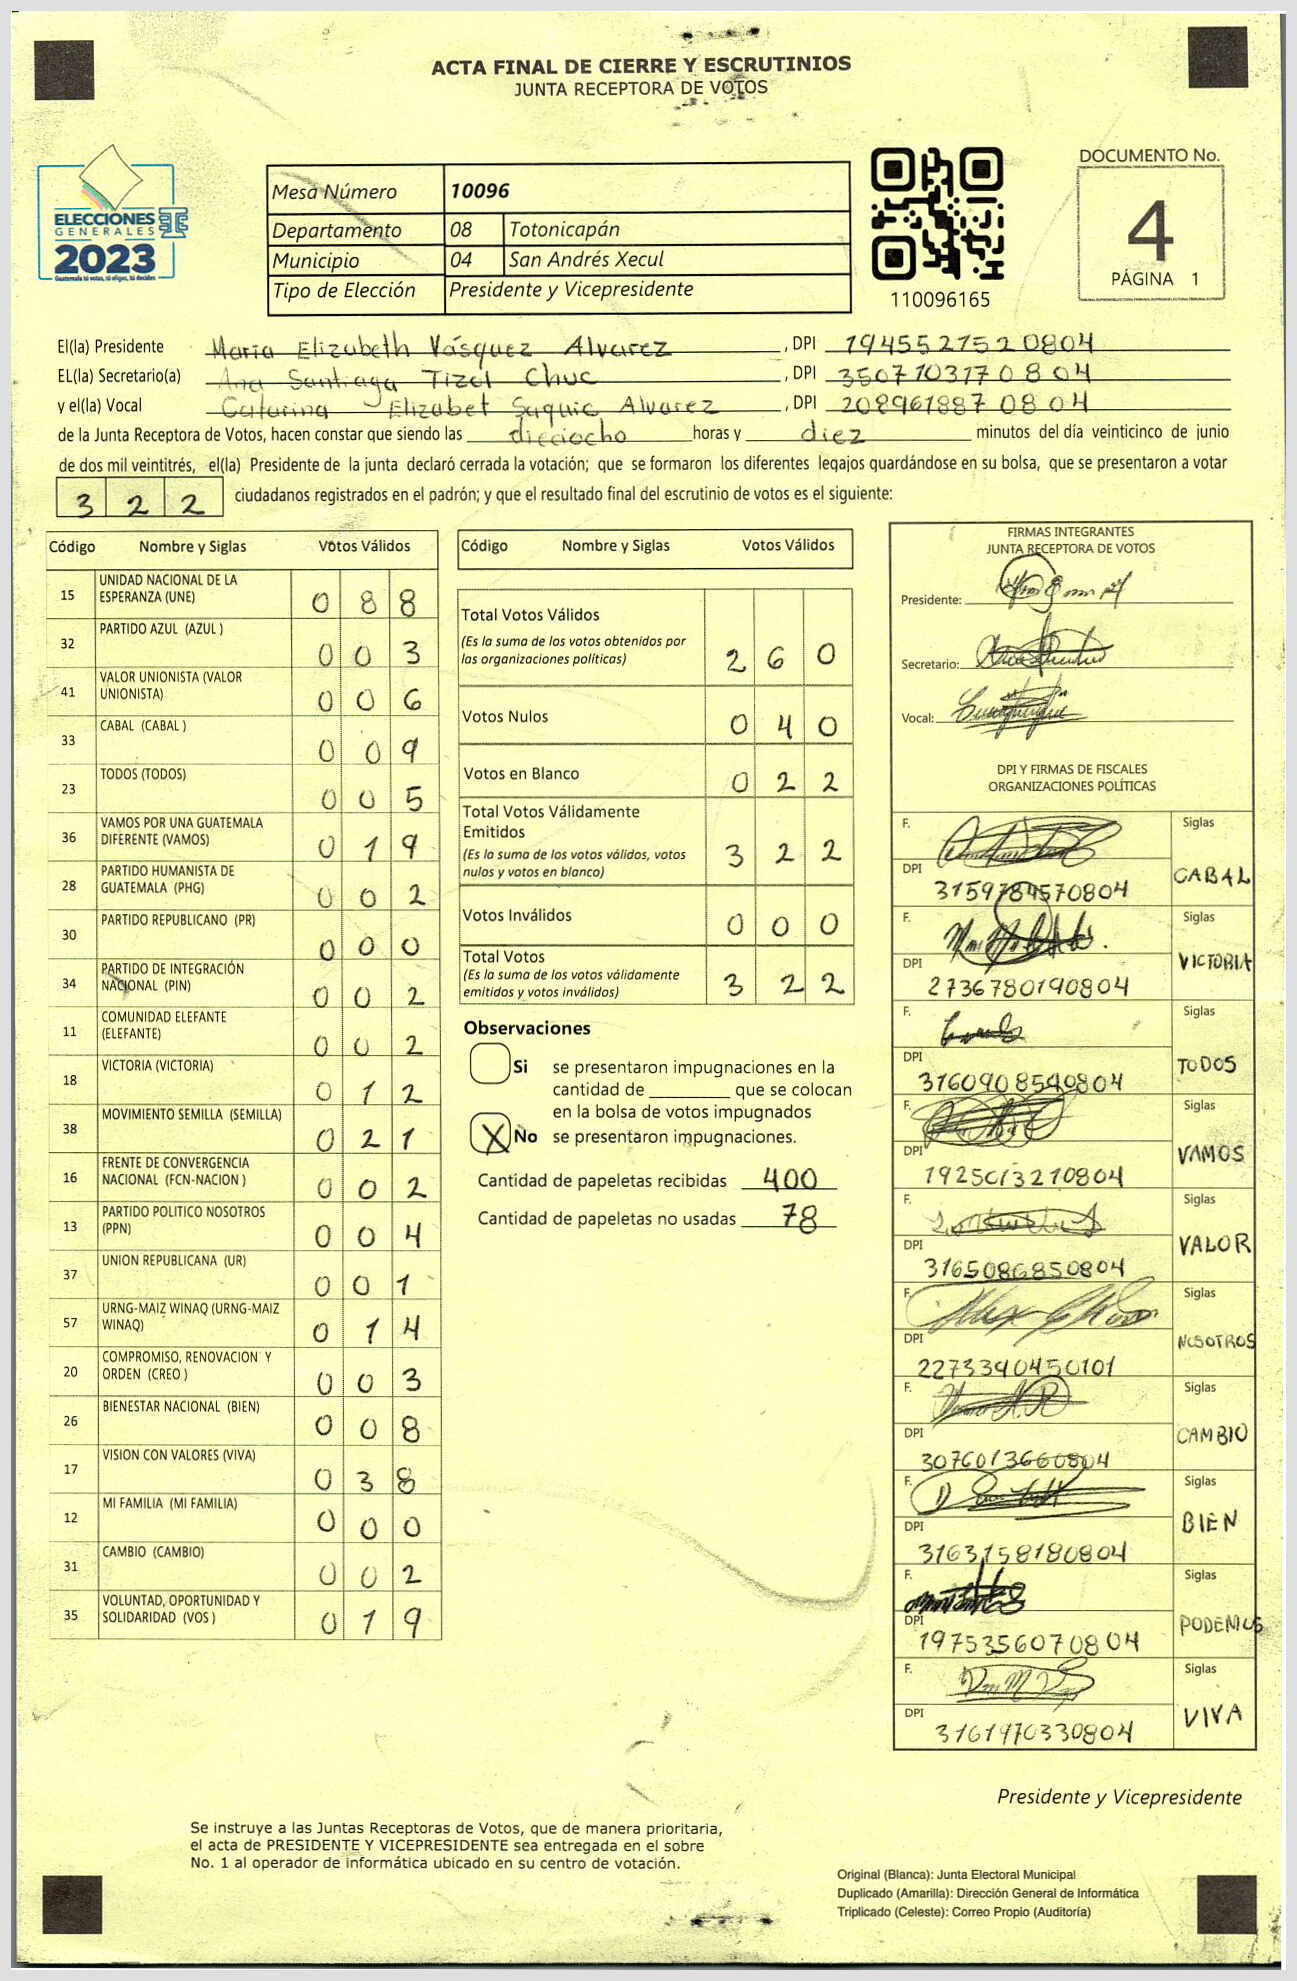 ACTA FINAL DE CIERRE Y ESCRUTINIOS
JUNTA RECEPTORA DE VOTOS
ELECCIONES
GENERALES
2023
Guatemala tú votas, tú eliges, tú decides
Mesa Número 10096
Departamento 08 Totonicapán
Municipio 04 San Andrés Xecul
Tipo de Elección Presidente y Vicepresidente
110096165
DOCUMENTO No.
4
PÁGINA 1
El(la) Presidente María Elizabeth Vásquez Alvarez, DPI 1945521520804
EL(la) Secretario(a) Ana Santiaga Tizol Chuc, DPI 3507103170804
y el(la) Vocal Catarina Elizabet Saquic Alvarez, DPI 2089618870804
de la Junta Receptora de Votos, hacen constar que siendo las dieciocho horas y diez minutos del día veinticinco de junio
de dos mil veintitrés, el(la) Presidente de la junta declaró cerrada la votación; que se formaron los diferentes legajos guardándose en su bolsa, que se presentaron a votar
322 ciudadanos registrados en el padrón; y que el resultado final del escrutinio de votos es el siguiente:
Código Nombre y Siglas Votos Válidos
15 UNIDAD NACIONAL DE LA ESPERANZA (UNE) 088
32 PARTIDO AZUL (AZUL ) 003
41 VALOR UNIONISTA (VALOR UNIONISTA) 006
33 CABAL (CABAL ) 009
23 TODOS (TODOS) 005
36 VAMOS POR UNA GUATEMALA DIFERENTE (VAMOS) 019
28 PARTIDO HUMANISTA DE GUATEMALA (PHG) 002
30 PARTIDO REPUBLICANO (PR) 000
34 PARTIDO DE INTEGRACIÓN NACIONAL (PIN) 002
11 COMUNIDAD ELEFANTE (ELEFANTE) 002
18 VICTORIA (VICTORIA) 012
38 MOVIMIENTO SEMILLA (SEMILLA) 021
16 FRENTE DE CONVERGENCIA NACIONAL (FCN-NACION ) 002
13 PARTIDO POLITICO NOSOTROS (PPN) 004
37 UNION REPUBLICANA (UR) 001
57 URNG-MAIZ WINAQ (URNG-MAIZ WINAQ) 014
20 COMPROMISO, RENOVACION Y ORDEN (CREO ) 003
26 BIENESTAR NACIONAL (BIEN) 008
17 VISION CON VALORES (VIVA) 038
12 MI FAMILIA (MI FAMILIA) 000
31 CAMBIO (CAMBIO) 002
35 VOLUNTAD, OPORTUNIDAD Y SOLIDARIDAD (VOS ) 019
Código Nombre y Siglas Votos Válidos
Total Votos Válidos 260
(Es la suma de los votos obtenidos por
las organizaciones políticas)
Votos Nulos 040
Votos en Blanco 022
Total Votos Válidamente
Emitidos 322
(Es la suma de los votos válidos, votos
nulos y votos en blanco)
Votos Inválidos 000
Total Votos 322
(Es la suma de los votos válidamente
emitidos y votos inválidos)
Observaciones
Si se presentaron impugnaciones en la
cantidad de ________ que se colocan
en la bolsa de votos impugnados
X No se presentaron impugnaciones.
Cantidad de papeletas recibidas 400
Cantidad de papeletas no usadas 78
FIRMAS INTEGRANTES
JUNTA RECEPTORA DE VOTOS
Presidente:
Secretario:
Vocal:
DPI Y FIRMAS DE FISCALES
ORGANIZACIONES POLÍTICAS
F. Siglas
DPI 3159784570804 CABAL
F. Siglas
DPI 2736780190804 VICTORIA
F. Siglas
DPI 3160908540804 TODOS
F. Siglas
DPI 1925013210804 VAMOS
F. Siglas
DPI 3165086850804 VALOR
F. Siglas
DPI 2273340450101 NOSOTROS
F. Siglas
DPI 3076013660804 CAMBIO
F. Siglas
DPI 3163158180804 BIEN
F. Siglas
DPI 1975356070804 PODEMOS
F. Siglas
DPI 3161970330804 VIVA
Presidente y Vicepresidente
Se instruye a las Juntas Receptoras de Votos, que de manera prioritaria,
el acta de PRESIDENTE Y VICEPRESIDENTE sea entregada en el sobre
No. 1 al operador de informática ubicado en su centro de votación.
Original (Blanca): Junta Electoral Municipal
Duplicado (Amarilla): Dirección General de Informática
Triplicado (Celeste): Correo Propio (Auditoría)